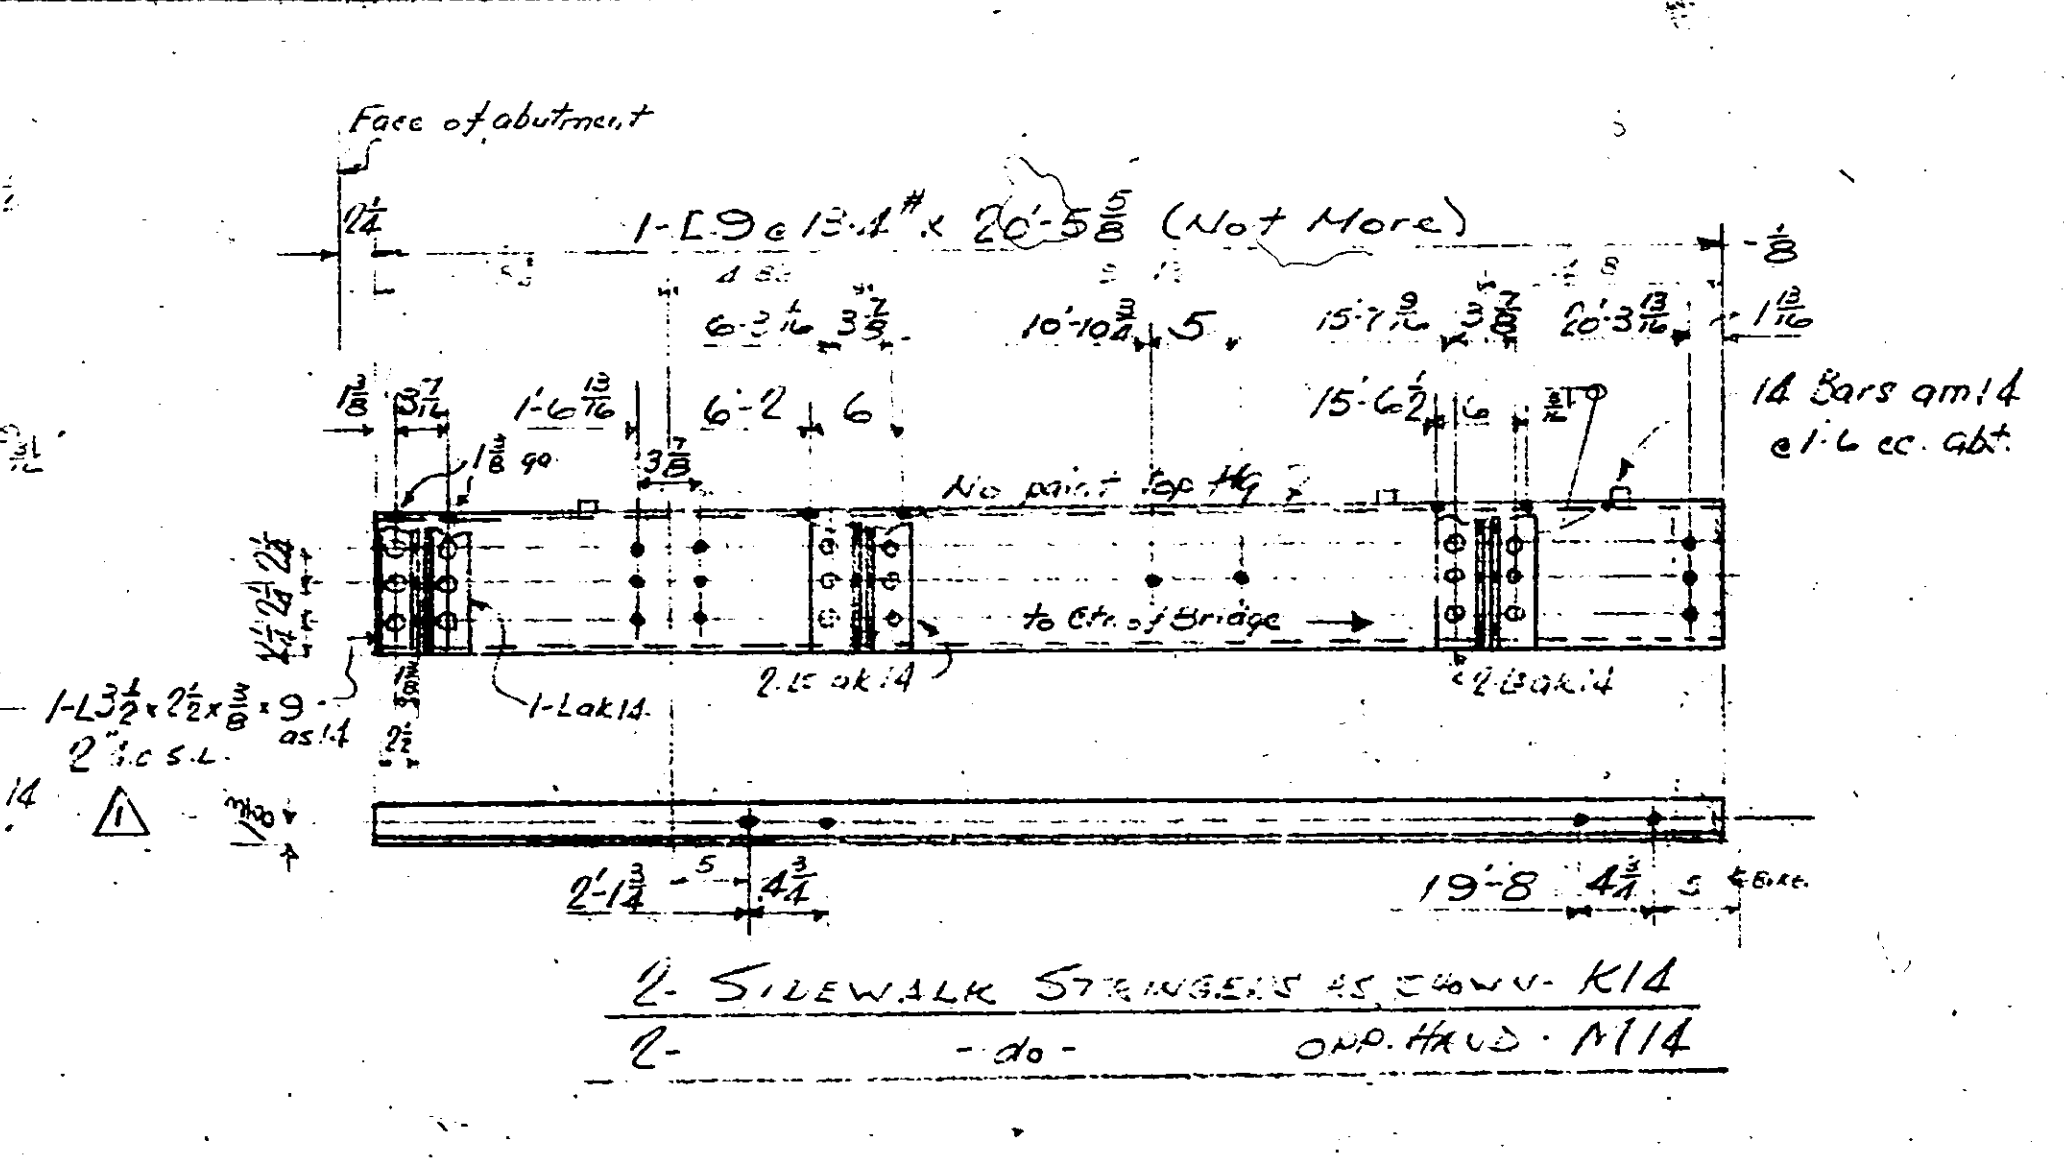 Face of abutment
2 1/4
1-[ 9 @ 13.4# x 20'-5 5/8 (Not More)
- 1/8
6-3 1/16 3 7/8 10'-10 3/4 5 15'-7 9/16 3 7/8 20'-3 13/16 1 13/16
1 3/8 3 7/16 1'-6 13/16 6'-2 6 15'-6 1/2 6
14 Bars am14
@ 1-6 cc. abt.
1 3/8 ga
3 7/8
No paint top flg
2 1/4 2 1/4
to Ctr. of Bridge
2 Ls ak14
2 Ls ak14
1-L 3 1/2 x 2 1/2 x 3/8 x 9
as14
1-L ak14
2 1/2
14
1
1 3/8
2'-1 3/4 5 4 3/4
19'-8 4 3/4 5
2- SIDEWALK STRINGERS AS SHOWN - K14
2- - do - OPP. HAND - M14